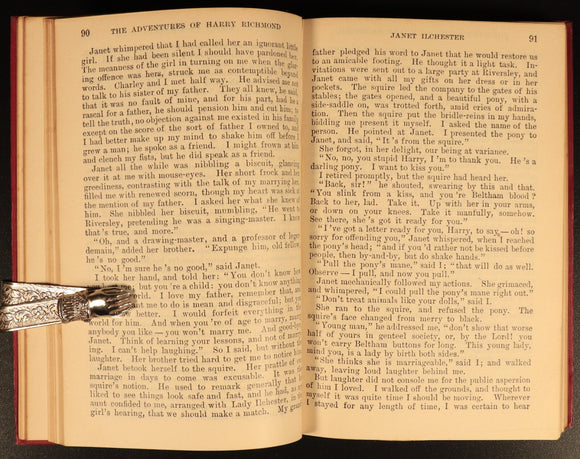 90 THE ADVENTURES OF HARRY RICHMOND
Janet whimpered that I had called her an ignorant little
girl. Even had she been silent I should have pardoned her.
The meanness of the girl in turning on me when the glar-
ing offence was hers, struck me as contemptible beyond
words. Charley and I met half way. He advised me not
to talk to his sister of my father. They all knew, he said,
that it was no fault of mine, and for his part, had he a
rascal for a father, he should pension him and cut him; to
tell the truth, no objection against me existed in his family
except on the score of the sort of father I owned to, and
I had better make up my mind to shake him off before I
grew a man; he spoke as a friend. I might frown at him
and clench my fists, but he did speak as a friend.
Janet all the while was nibbling a biscuit, glancing
over it at me with mouse-eyes. Her short frock and her
greediness, contrasting with the talk of my marrying her,
filled me with renewed scorn, though my heart was sick at
the mention of my father. I asked her what she knew of
him. She nibbled her biscuit, mumbling, "He went to
Riversley, pretending he was a singing-master. I know
that's true, and more."
"Oh, and a drawing-master, and a professor of leger-
demain," added her brother. "Expunge him, old fellow,
he's no good."
"No, I'm sure he's no good," said Janet.
I took her hand, and told her: "You don't know how
you but you're a child: you don't know anything
world. I love my father, remember that, and
what you say against me to do is mean and disgraceful; but you
better. I would forgive everything in the
world for him. And when you're of age to marry, marry
anybody you like — you won't marry me. And good-bye,
Janet. Think of learning your lessons, and not of marry-
ing. I can't help laughing." So I said, but without the
laughter. Her brother tried hard to get me to notice him.
Janet betook herself to the squire. Her prattle of our
marriage in days to come was excusable. It was the
squire's notion. He used to remark generally that he
liked to see things look safe and fast, and he had, as my
aunt confided to me, arranged with Lady Ilchester, in the
girl's hearing, that we should make a match. My grand-
JANET ILCHESTER 91
father pledged his word to Janet that he would restore us
to an amicable footing. He thought it a light task. In-
vitations were sent out to a large party at Riversley, and
Janet came with all my gifts on her dress or in her
pockets. The squire led the company to the gates of his
stables; the gates opened, and a beautiful pony, with a
side-saddle on, was trotted forth, amid cries of admira-
tion. Then the squire put the bridle-reins in my hands,
bidding me present it myself. I asked the name of the
person. He pointed at Janet. I presented the pony to
Janet, and said, "It's from the squire."
She forgot, in her delight, our being at variance.
"No, no, you stupid Harry, I'm to thank you. He's a
darling pony. I want to kiss you."
I retired promptly, but the squire had heard her.
"Back, sir!" he shouted, swearing by this and that.
"You slink from a kiss, and you're Beltham blood?
Back to her, lad. Take it. Up with her in your arms,
or down on your knees. Take it manfully, somehow.
See there, she's got it ready for you."
"I've got a letter ready for you, Harry, to say — oh! so
sorry for offending you," Janet whispered, when I reached
the pony's head; "and if you'd rather not be kissed before
people, then by-and-by, but do shake hands."
"Pull the pony's mane," said I; "that will do as well.
Observe — I pull, and now you pull."
Janet mechanically followed my actions. She grimaced,
and whimpered, "I could pull the pony's mane right out."
"Don't treat animals like your dolls," said I.
She ran to the squire, and refused the pony. The
squire's face changed from merry to black.
"Young man," he addressed me, "don't show that worse
half of yours in genteel society, or, by the Lord! you
won't carry Beltham buttons for long. This young lady,
mind you, is a lady by birth both sides."
"She thinks she is marriageable," said I; and walked
away, leaving loud laughter behind me.
But laughter did not console me for the public aspersion
of him I loved. I walked off the grounds, and thought to
myself it was quite time I should be moving. Wherever
I stayed for any length of time, I was certain to hear